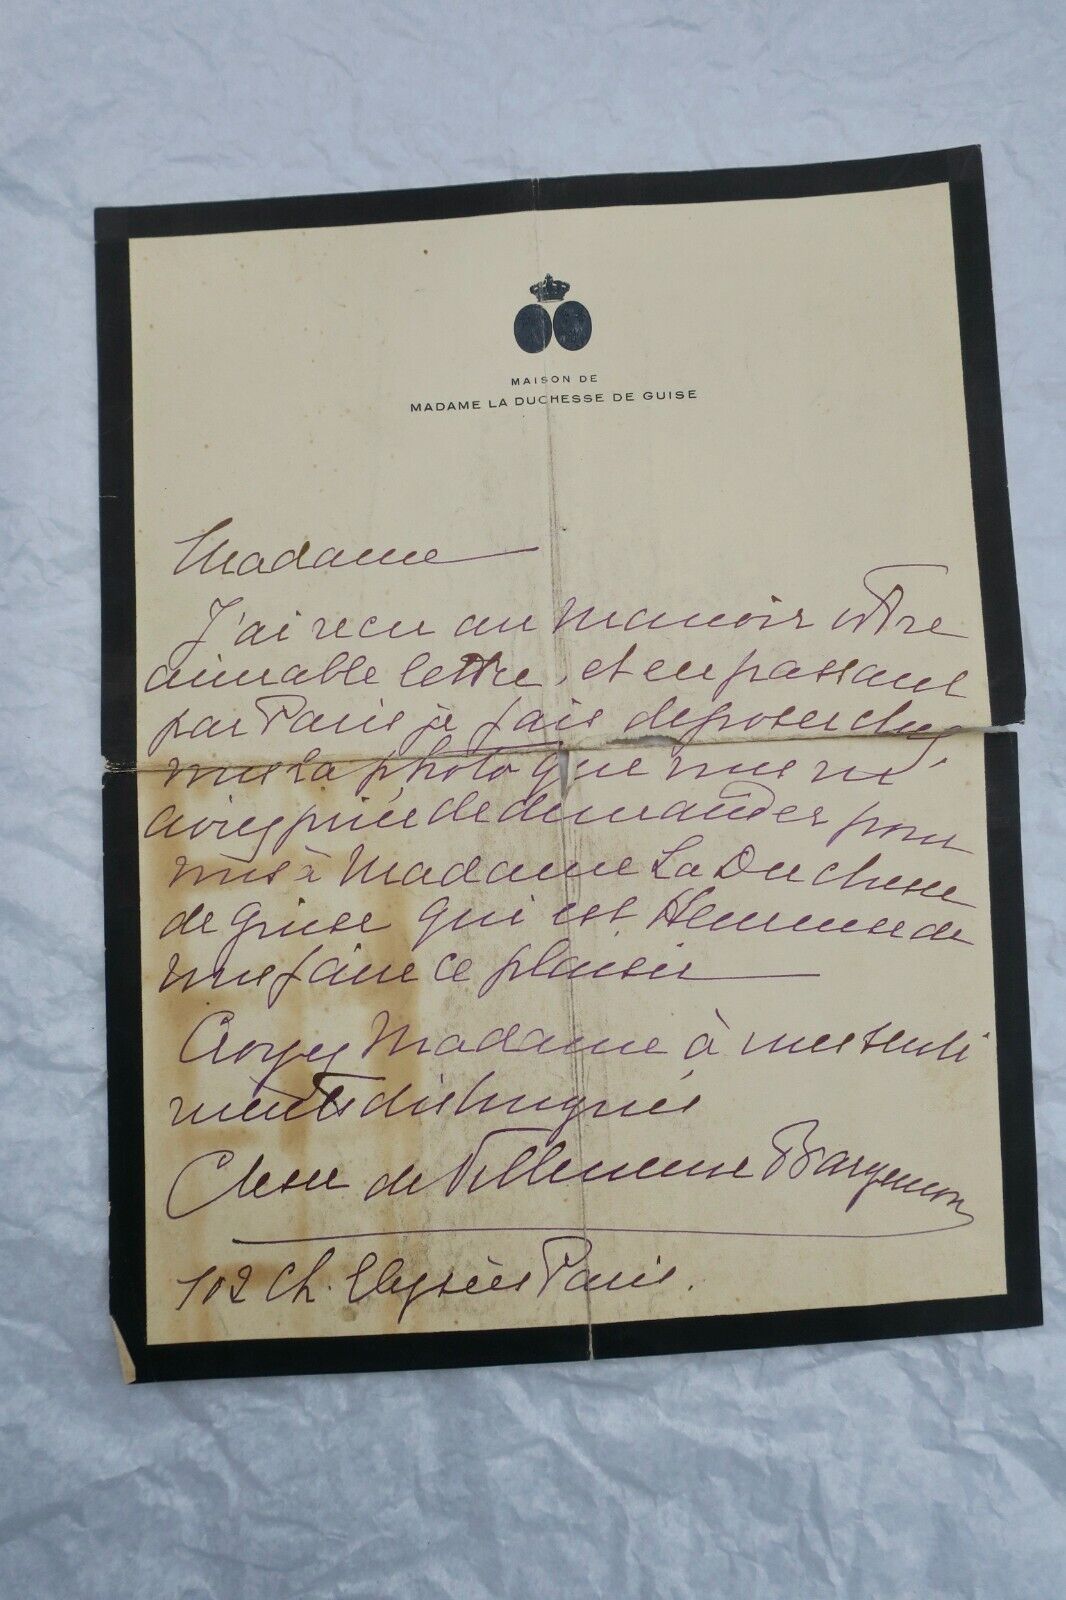 MAISON DE
MADAME LA DUCHESSE DE GUISE
Madame
J'ai recu au Manoir votre
aimable lettre, et en passant
par Paris je fais deposer chez
vous la photo que vous m'
aviez priée de demander pour
vous à Madame La Duchesse
de Guise qui est Heureuse de
vous faire ce plaisir
Croyez Madame à mes senti
ments distingués
Ctesse de Villeneuve Bargemon
102 Ch. Elysées Paris.